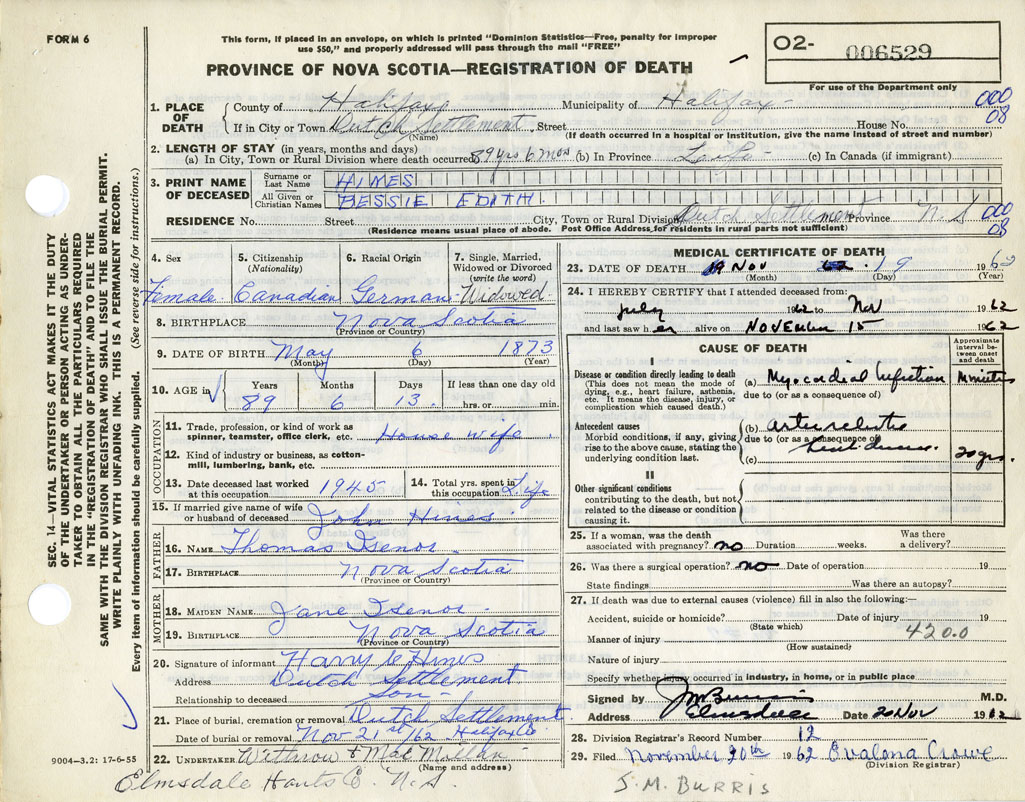 FORM 6
This form, if placed in an envelope, on which is printed "Dominion Statistics—Free, penalty for improper
use $50," and properly addressed will pass through the mail "FREE"
PROVINCE OF NOVA SCOTIA—REGISTRATION OF DEATH
O2- 006529
For use of the Department only
1. PLACE OF DEATH
County of Halifax Municipality of Halifax 000
If in City or Town Dutch Settlement, Street House No. 08
(Name) (If death occurred in a hospital or institution, give the name instead of street and number)
2. LENGTH OF STAY (in years, months and days)
(a) In City, Town or Rural Division where death occurred 89 yrs 6 mos (b) In Province Life (c) In Canada (if immigrant)
3. PRINT NAME OF DECEASED
Surname or Last Name HIMES
All Given or Christian Names BESSIE EDITH.
RESIDENCE No. Street City, Town or Rural Division Dutch Settlement Province N.S 000
(Residence means usual place of abode. Post Office Address, for residents in rural parts not sufficient) 08
4. Sex
Female
5. Citizenship (Nationality)
Canadian
6. Racial Origin
German
7. Single, Married, Widowed or Divorced (write the word)
Widowed
8. BIRTHPLACE Nova Scotia
(Province or Country)
9. DATE OF BIRTH May 6 1873
(Month) (Day) (Year)
10. AGE in Years Months Days If less than one day old
89 6 13 hrs. or min.
OCCUPATION
11. Trade, profession, or kind of work as spinner, teamster, office clerk, etc. House wife
12. Kind of industry or business, as cotton-mill, lumbering, bank, etc.
13. Date deceased last worked at this occupation 1945
14. Total yrs. spent in this occupation Life
15. If married give name of wife or husband of deceased John Himes
FATHER
16. NAME Thomas Isenor
17. BIRTHPLACE Nova Scotia
(Province or Country)
MOTHER
18. MAIDEN NAME Jane Isenor
19. BIRTHPLACE Nova Scotia
(Province or Country)
20. Signature of informant Harry Himes
Address Dutch Settlement
Relationship to deceased Son
21. Place of burial, cremation or removal Dutch Settlement
Date of burial or removal Nov 21st/62 Halifax Co
22. UNDERTAKER Withrow & MacMillan
(Name and address)
9004—3.2: 17-6-55
Elmsdale Hants Co. N.S.
MEDICAL CERTIFICATE OF DEATH
23. DATE OF DEATH Nov 19 1962
(Month) (Day) (Year)
24. I HEREBY CERTIFY that I attended deceased from:
July 1962 to Nov 1962
and last saw her alive on NOVEMBER 15 1962
CAUSE OF DEATH
Approximate interval between onset and death
I
Disease or condition directly leading to death
(This does not mean the mode of dying, e.g., heart failure, asthenia, etc. It means the disease, injury, or complication which caused death.)
(a) Myocardial Infarction Minutes
due to (or as a consequence of)
Antecedent causes
Morbid conditions, if any, giving rise to the above cause, stating the underlying condition last.
(b) arteriosclerotic
due to (or as a consequence of)
(c) heart disease 20 yrs.
II
Other significant conditions
contributing to the death, but not related to the disease or condition causing it.
25. If a woman, was the death associated with pregnancy? no Duration weeks. Was there a delivery?
26. Was there a surgical operation? no Date of operation 19
State findings Was there an autopsy?
27. If death was due to external causes (violence) fill in also the following:—
Accident, suicide or homicide? Date of injury 19
(State which)
420.0
Manner of injury
(How sustained)
Nature of injury
Specify whether injury occurred in industry, in home, or in public place
Signed by J M Burris M.D.
Address Elmsdale Date 20 Nov 1962
28. Division Registrar's Record Number 12
29. Filed November 20th 1962 Evalona Crowe
(Division Registrar)
J.M. BURRIS
SEC. 14—VITAL STATISTICS ACT MAKES IT THE DUTY
OF THE UNDERTAKER OR PERSON ACTING AS UNDER-
TAKER TO OBTAIN ALL THE PARTICULARS REQUIRED
IN THE "REGISTRATION OF DEATH" AND TO FILE THE
SAME WITH THE DIVISION REGISTRAR WHO SHALL ISSUE THE BURIAL PERMIT.
WRITE PLAINLY WITH UNFADING INK. THIS IS A PERMANENT RECORD.
Every item of information should be carefully supplied. (See reverse side for instructions.)